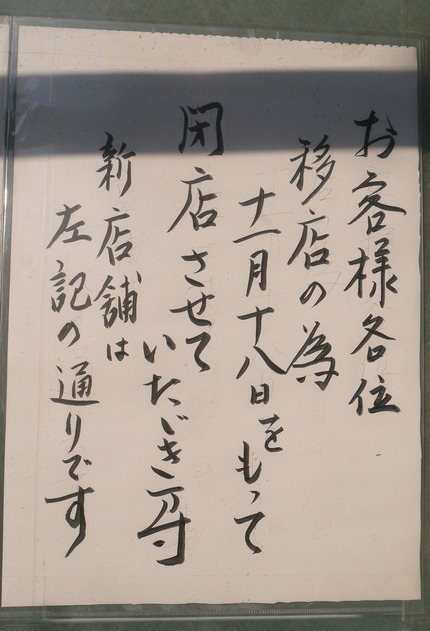 お客様各位
移店の為
十一月十八日をもって
閉店させて
いたゞき万寸
新店舗は
左記の通りです